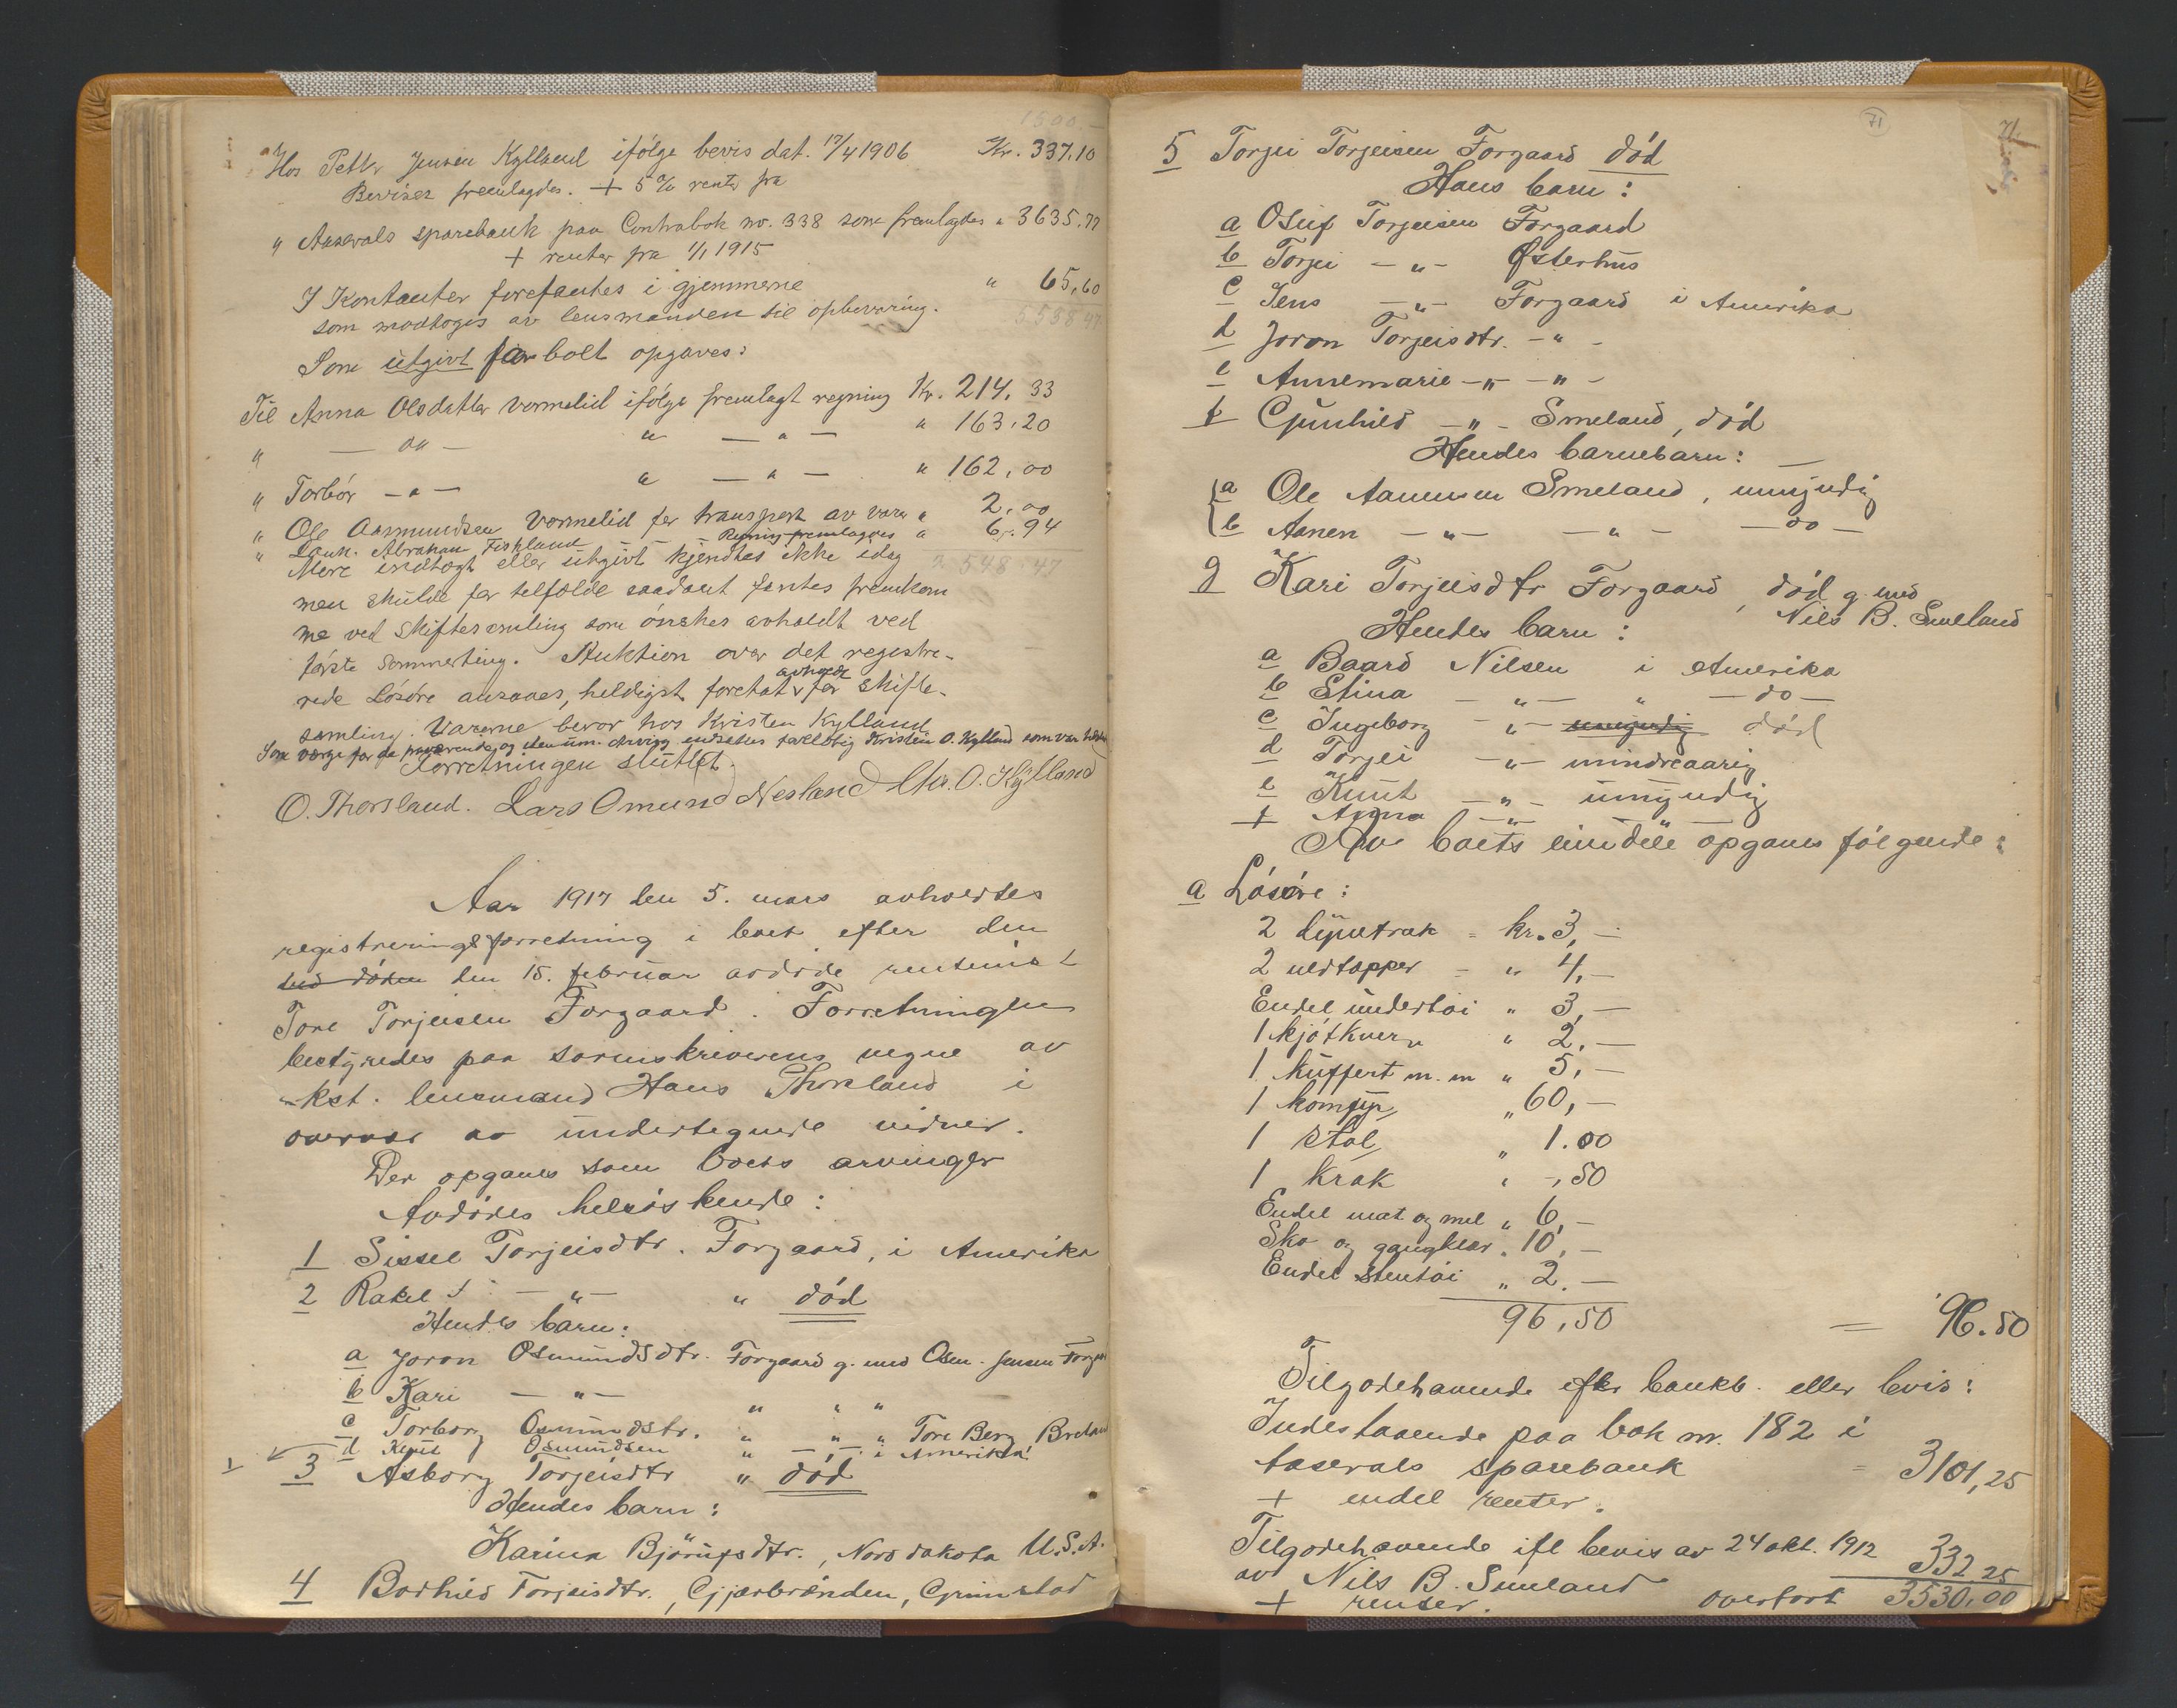 Hos Petter Jensen Kylland ifölge bevis dat. 17/4 1906 Kr. 337.10
Beviset fremlagdes. + 5 % rente fra
" Aaserals sparebank paa Contrabok no. 338 som fremlagdes " 3635.77
+ renter fra 1/1 1915
I Kontanter forefantes i gjemmerne " 65,60
som modtoges av lensmanden til opbevaring.
Som utgivt for boet opgaves:
Til Anna Olsdatter Vormelid ifölge fremlagt regning Kr. 214,33
" — do — " — " — " 163,20
" Torbör — " — " — " — " 162,00
" Ole Aasmundsen Vormelid for transport av varer " 2,00
" Lauh. Abraham Fiskland — Regning fremlagdes " 6.94
Mere indtægt eller utgivt kjendtes ikke idag 548.47
men skulde for tilfælde saadant fantes fremkom
me ved skiftesamling som önskes avholdt ved
förste sommerting. Auktion over det registre-
rede lösöre ansaaes, heldigst foretat avholdt för skifte-
samling. Varerne beror hos Kristen Kylland
Som værge for de fraværende og den um. Arving endsættes foreløbig Kristen O. Kylland som var tilstede
Forretningen sluttet.
O. Thorsland. Lars Omund Nesland Chr. O. Kylland
Aar 1917 den 5. mars avholdtes
registreringsforretning i boet efter den
ved döden den 15. februar avdöde rentenist
Tore Torjeisen Forgaard. Forretningen
bestyredes paa sorenskriverens vegne av
kst. lensmand Hans Thorsland i
overvær av undertegnede vidner.
Der opgaves som boets arvinger
Avdödes helsöskende:
1 Sissel Torjeisdtr. Forgaard, i Amerika
2 Rakel — " — " död
Hendes barn:
a Joron Osmundsdtr. Forgaard g. med Osm. Jensen Forgaard
b Kari — " — " " "
c Torborg Osmundsdtr. " " " Tore Berg Breland
d Knut Osmundsen " — " — i Amerika!
3 Asborg Torjeisdtr " död
Hendes barn:
Karina Björnufsdtr., Nord dakota U.S.A.
4 Borhild Torjeisdtr., Gjærbrönden, Grimstad
71
5 Torjei Torjeisen Forgaard död
Hans barn:
a Osuf Torjeisen Forgaard
b Torjei — " — Østerhus
c Jens — " — Forgaard i Amerika
d Joron Torjeisdtr. — " —
e Annemarie — " — " —
f Gunhild — " — Smeland, död
Hendes barnebarn: —
a Ole Aanensen Smeland, umyndig
b Aanen — " — — " — — do —
g Kari Torjeisdtr Forgaard, död g. med
Nils B. Smeland
Hendes barn:
a Baard Nilsen i Amerika
b Stina — " — " — do —
c Ingeborg — " — umyndig död
d Torjei — " — mindreaarig
e Knut — " — umyndig
f Anna — " — "
Av boets eiendele opgaves følgende:
a Lösöre:
2 dynetræk = kr. 3,—
2 uldtepper = " 4,—
Endel undertöi " 3,—
1 kjötkvern " 2.—
1 kuffert m. m " 5,—
1 komfyr " 60,—
1 stol " 1.00
1 krak " -,50
Endel mat og mel " 6,—
Sko og gangklær " 10,—
Endel stentöi " 2.—
96,50 = 96.50
Tilgodehavende efter bankb. eller bevis:
Indestaaende paa bok nr. 182 i
Aaserals sparebank = 3101,25
+ endel renter.
Tilgodehavende ifl bevis av 24 okt. 1912 332 25
av Nils B. Smeland
+ renter. overfört 3530,00